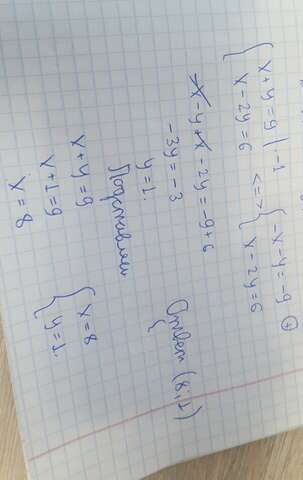 { x + y = 9 | -1
{ x - 2y = 6 <=> { -x - y = -9 (+)
{ x - 2y = 6
-x - y + x - 2y = -9 + 6
-3y = -3
y = 1.
Подставляем
x + y = 9
x + 1 = 9
x = 8
{ x = 8
{ y = 1.
Ответ (8;1)